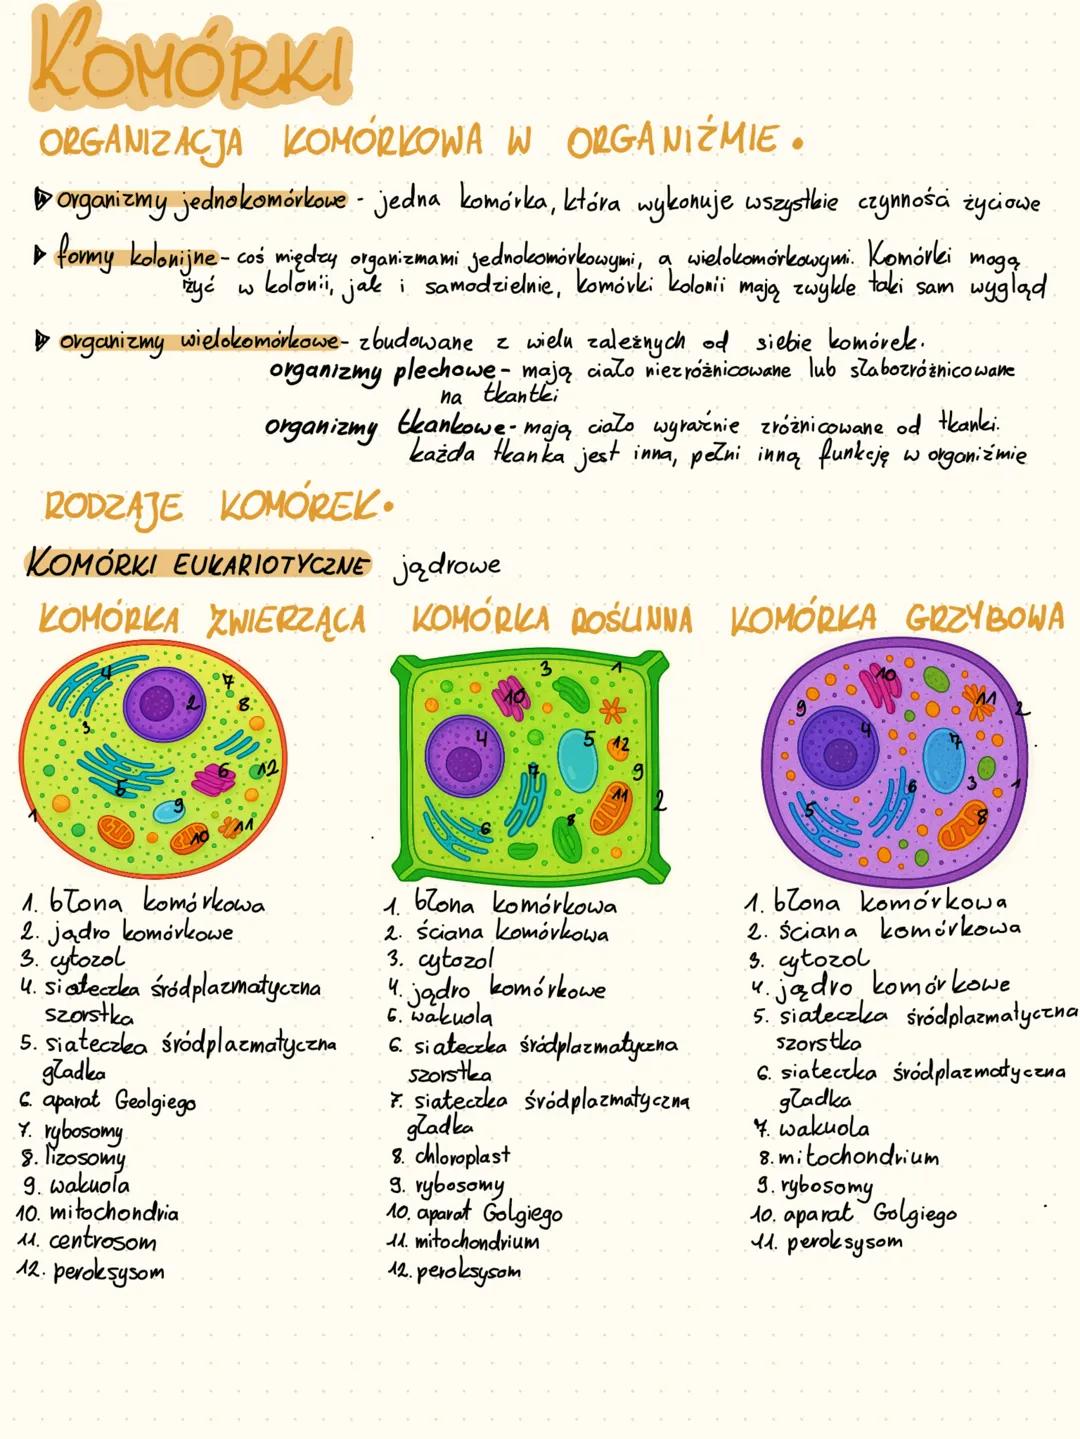 KOMÓRKI
ORGANIZACJA KOMÓRKOWA W ORGANIŹMIE.
organizmy jednokomórkowe - jedna komórka, która wykonuje wszystkie czynności życiowe
formy kolonijne - coś między organizmami jednokomórkowymi, a wielokomórkowymi. Komórki mogą
żyć w kolonii, jak i samodzielnie, komórki kolonii mają zwykle taki sam wygląd
organizmy wielokomórkowe - zbudowane z wielu zależnych od siebie komórek.
organizmy plechowe - mają ciało niezróżnicowane lub słabozróżnicowane
na tkantki
organizmy tkankowe - mają ciało wyraźnie zróżnicowane od tkanki.
każda tkanka jest inna, pełni inną funkcję w organiźmie
RODZAJE KOMÓREK.
KOMÓRKI EUKARIOTYCZNE jądrowe
KOMÓRKA ZWIERZĄCA
4
2
7
8
3
5
6
12
9
1
10
11
1. błona komórkowa
2. jądro komórkowe
3. cytozol
4. siateczka śródplazmatyczna
szorstka
5. siateczka śródplazmatyczna
gładka
6. aparat Geolgiego
7. rybosomy
8. lizosomy
9. wakuola
10. mitochondria
11. centrosom
12. peroksysom
KOMÓRKA ROŚLINNA
3
1
10
4
5
12
7
9
11
2
6
8
1. błona komórkowa
2. ściana komórkowa
3. cytozol
4. jądro komórkowe
5. wakuola
6. siateczka śródplazmatyczna
szorstka
7. siateczka śródplazmatyczna
gładka
8. chloroplast
9. rybosomy
10. aparat Golgiego
11. mitochondrium
12. peroksysom
KOMÓRKA GRZYBOWA
10
9
11
2
4
7
6
3
1
5
8
1. błona komórkowa
2. ściana komórkowa
3. cytozol
4. jądro komórkowe
5. siateczka śródplazmatyczna
szorstka
6. siateczka śródplazmatyczna
gładka
7. wakuola
8. mitochondrium
9. rybosomy
10. aparat Golgiego
11. peroksysom